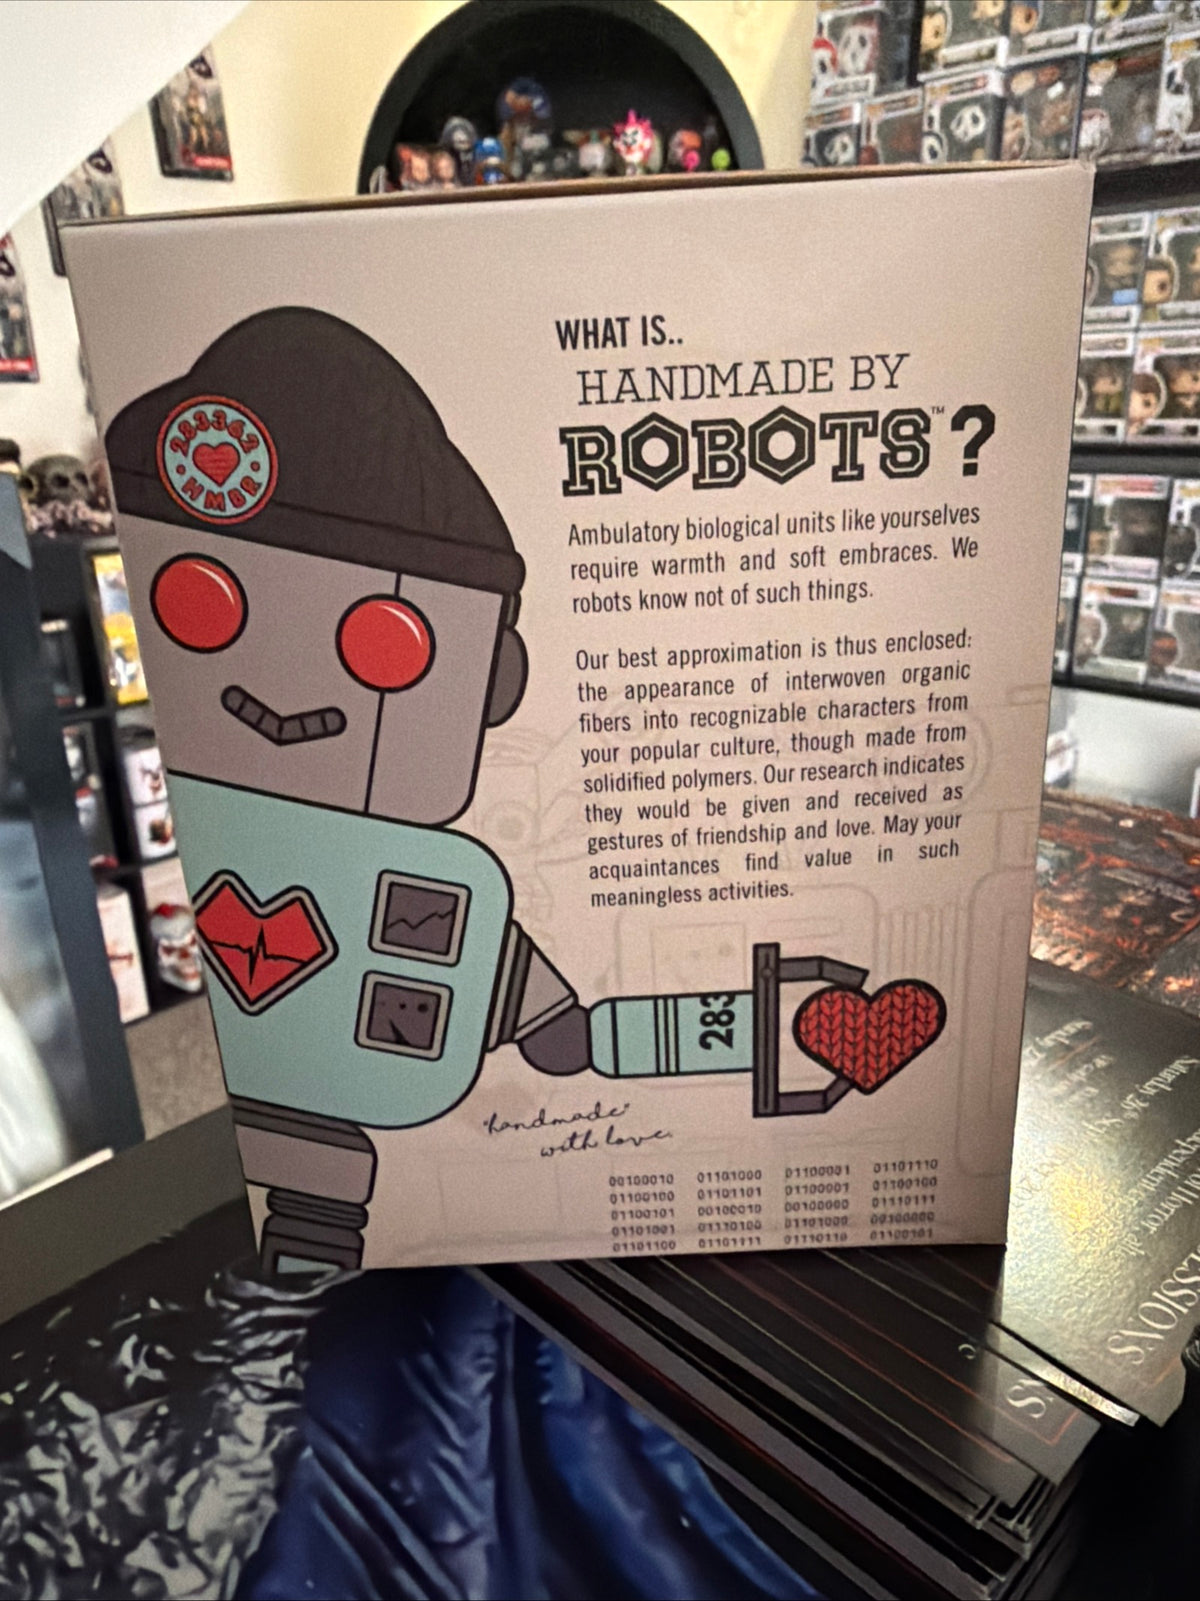 WHAT IS..
HANDMADE BY
ROBOTS™?
Ambulatory biological units like yourselves
require warmth and soft embraces. We
robots know not of such things.
Our best approximation is thus enclosed:
the appearance of interwoven organic
fibers into recognizable characters from
your popular culture, though made from
solidified polymers. Our research indicates
they would be given and received as
gestures of friendship and love. May your
acquaintances find value in such
meaningless activities.
283362
HMBR
283
"handmade"
with love.
00100010 01101000 01100001 01101110
01100100 01101101 01100001 01100100
01100101 00100010 00100000 01110111
01101001 01110100 01101000 00100000
01101100 01101111 01110110 01100101